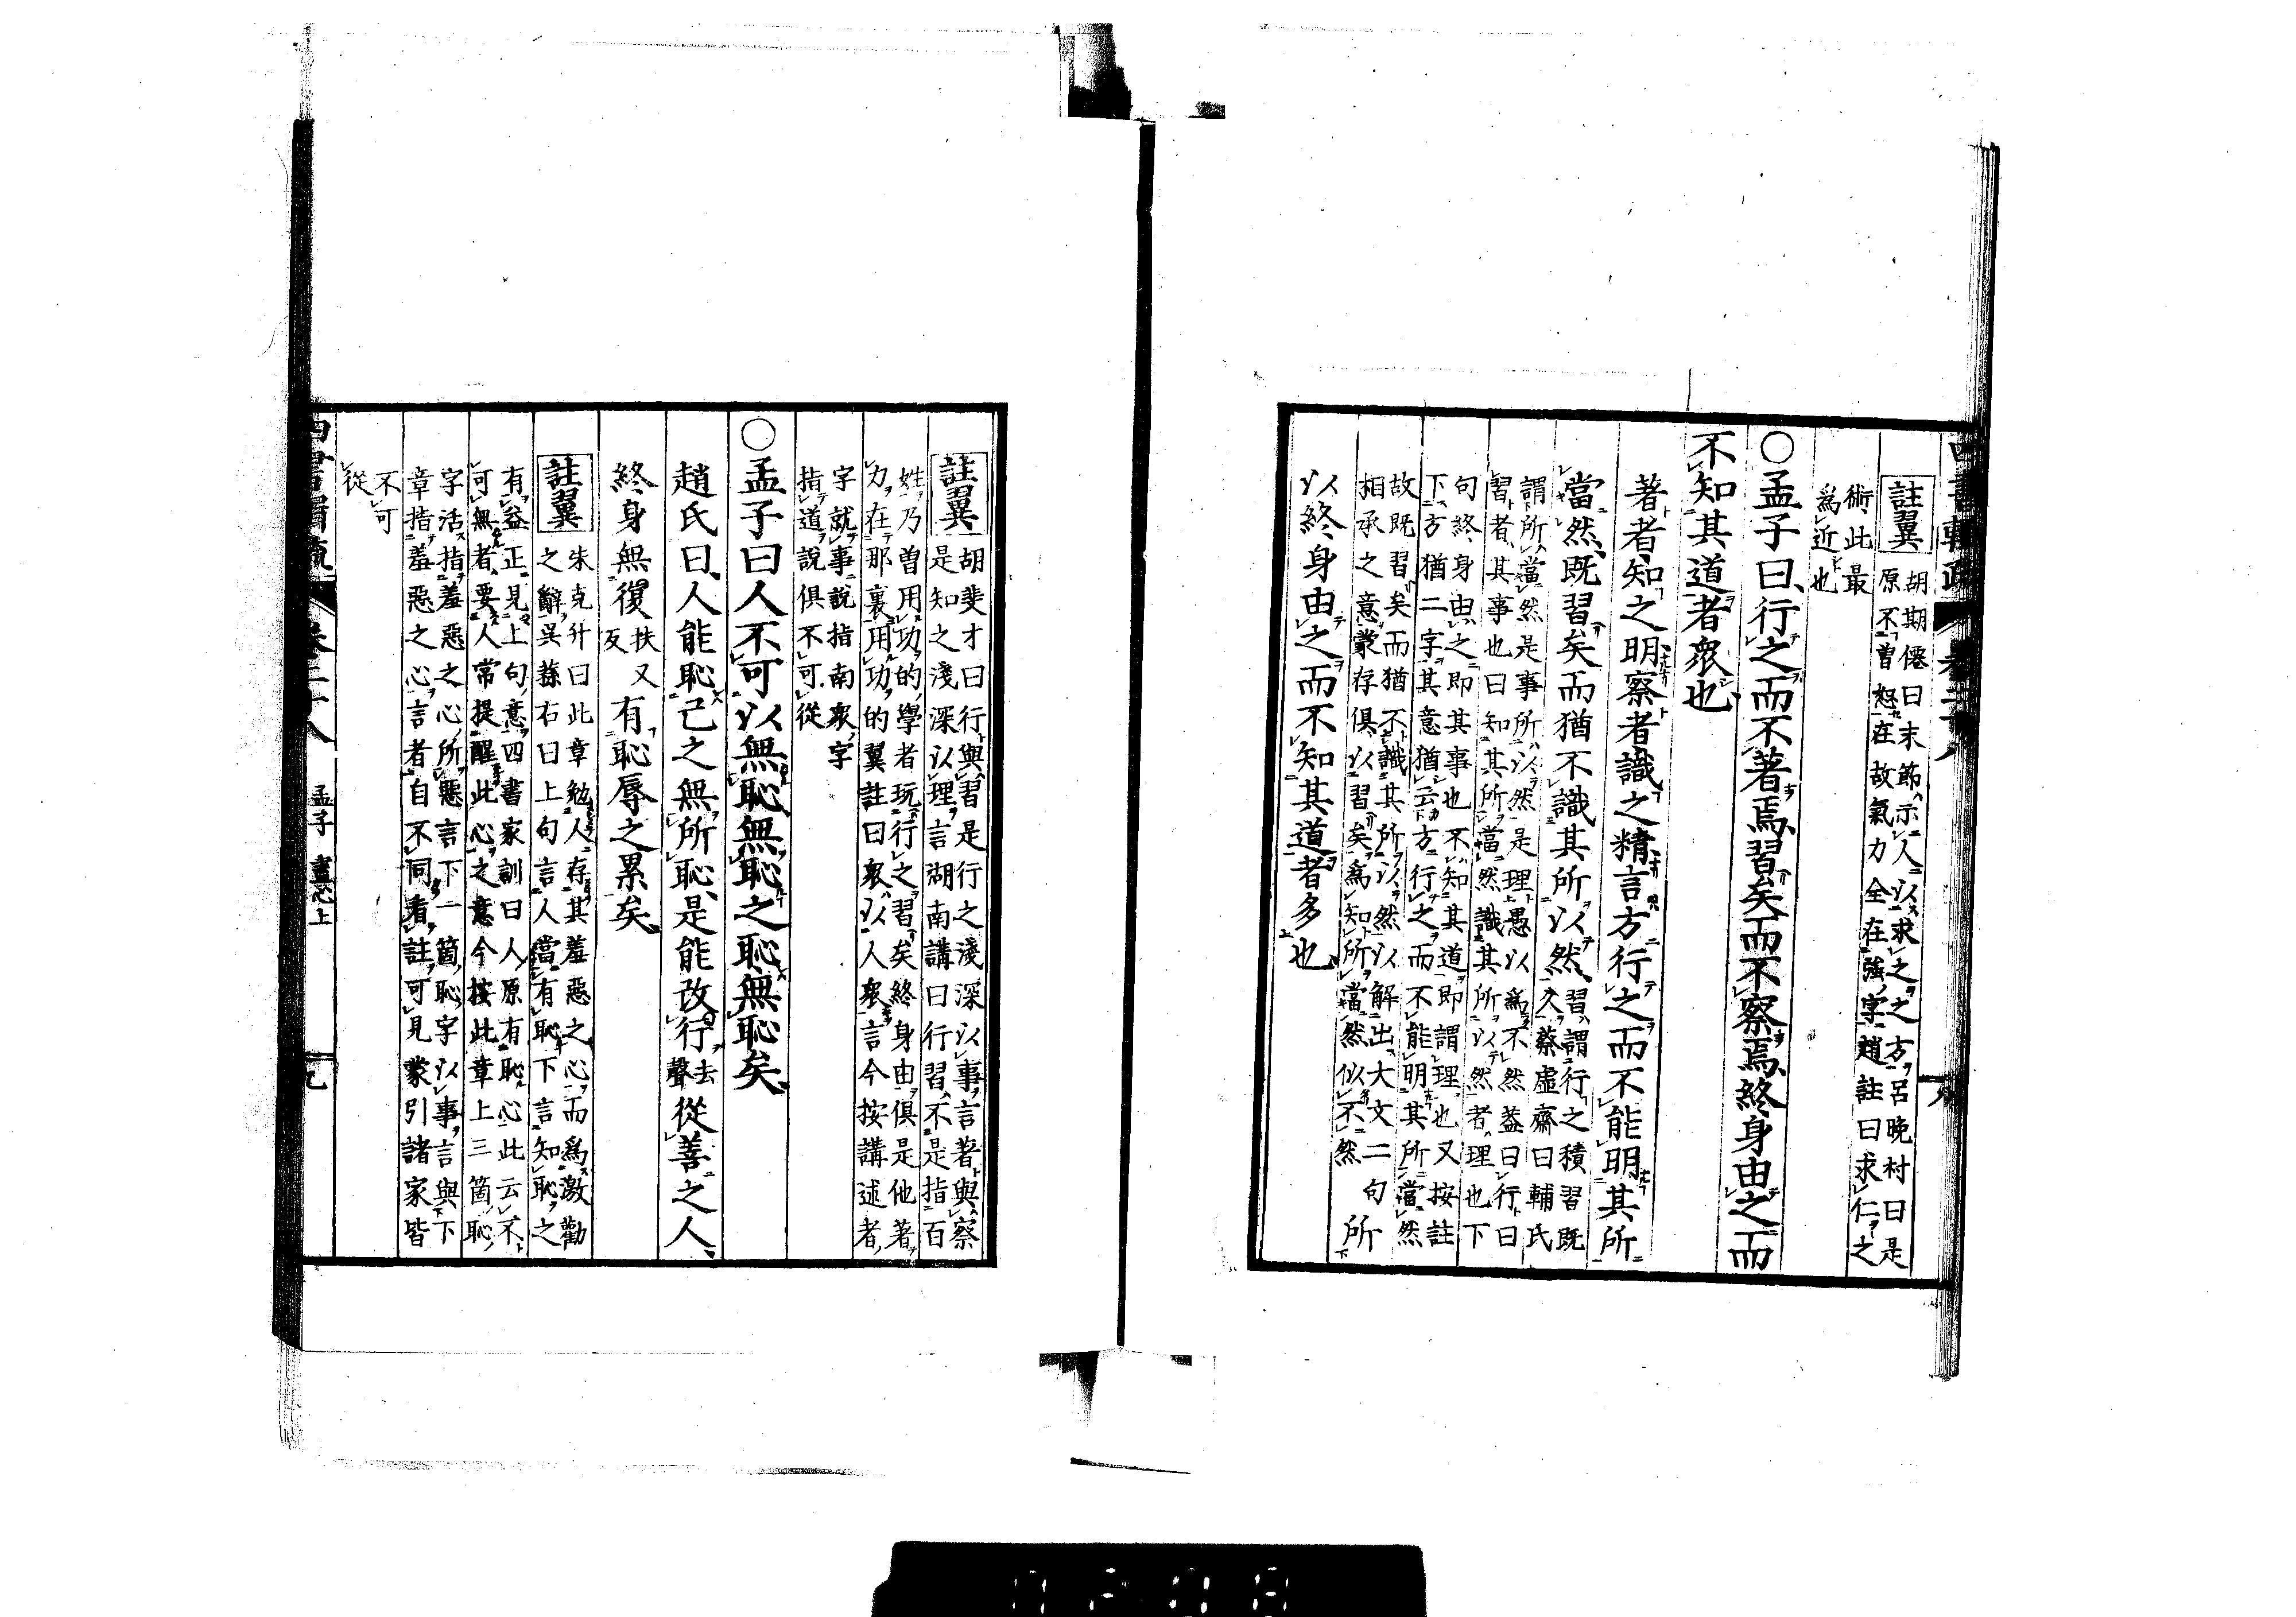 註翼
胡期僊曰末節示人以求之之方呂晚村曰是
原不曾恕在故氣力全在強字趙註曰求仁之
術此最
爲近也
○孟子曰行之而不著焉習矣而不察焉終身由之而
不知其道者衆也
著者知之明察者識之精言方行之而不能明其所
當然既習矣而猶不識其所以然
習謂行之積習既
久蔡虛齋曰輔氏
謂所當然是事所以然是理愚以爲不然益曰行曰
習者其事也曰知其所當然識其所以然者理也下
句終身由之即其事也不知其道即謂理也又按註
下方猶二字其意猶云方行之而不能明其所當然
故既習矣而猶不識其所以然以解出大文二句
相承之意蒙存俱以習矣爲知所當然似不然
所
以終身由之而不知其道者多也
四書輯疏
卷二十八
八
註翼
胡斐才曰行與習是行之淺深以事言著與察
是知之淺深以理言湖南講曰行習不是指百
姓乃曾用功的學者玩行之習矣終身由俱是他著
力在那裏用功的翼註曰衆以人衆言今按講述者
字就事說指南衆字
指道說俱不可從
○孟子曰人不可以無恥無恥之恥無恥矣
趙氏曰人能恥己之無所恥是能改行
去
聲
從善之人
終身無復
扶又
反
有恥辱之累矣
註翼
朱克升曰此章勉人存其羞惡之心而爲激勸
之辭吳蓀右曰上句言人當有恥下言知恥之
有益正見上句意四書家訓曰人原有恥心此云不
可無者要人常提醒此心之意今按此章上三箇恥
字活指羞惡之心所惡言下一箇恥字以事言與下
章指羞惡之心言者自不同看註可見蒙引諸家皆
不可
從
孟子
盡心上